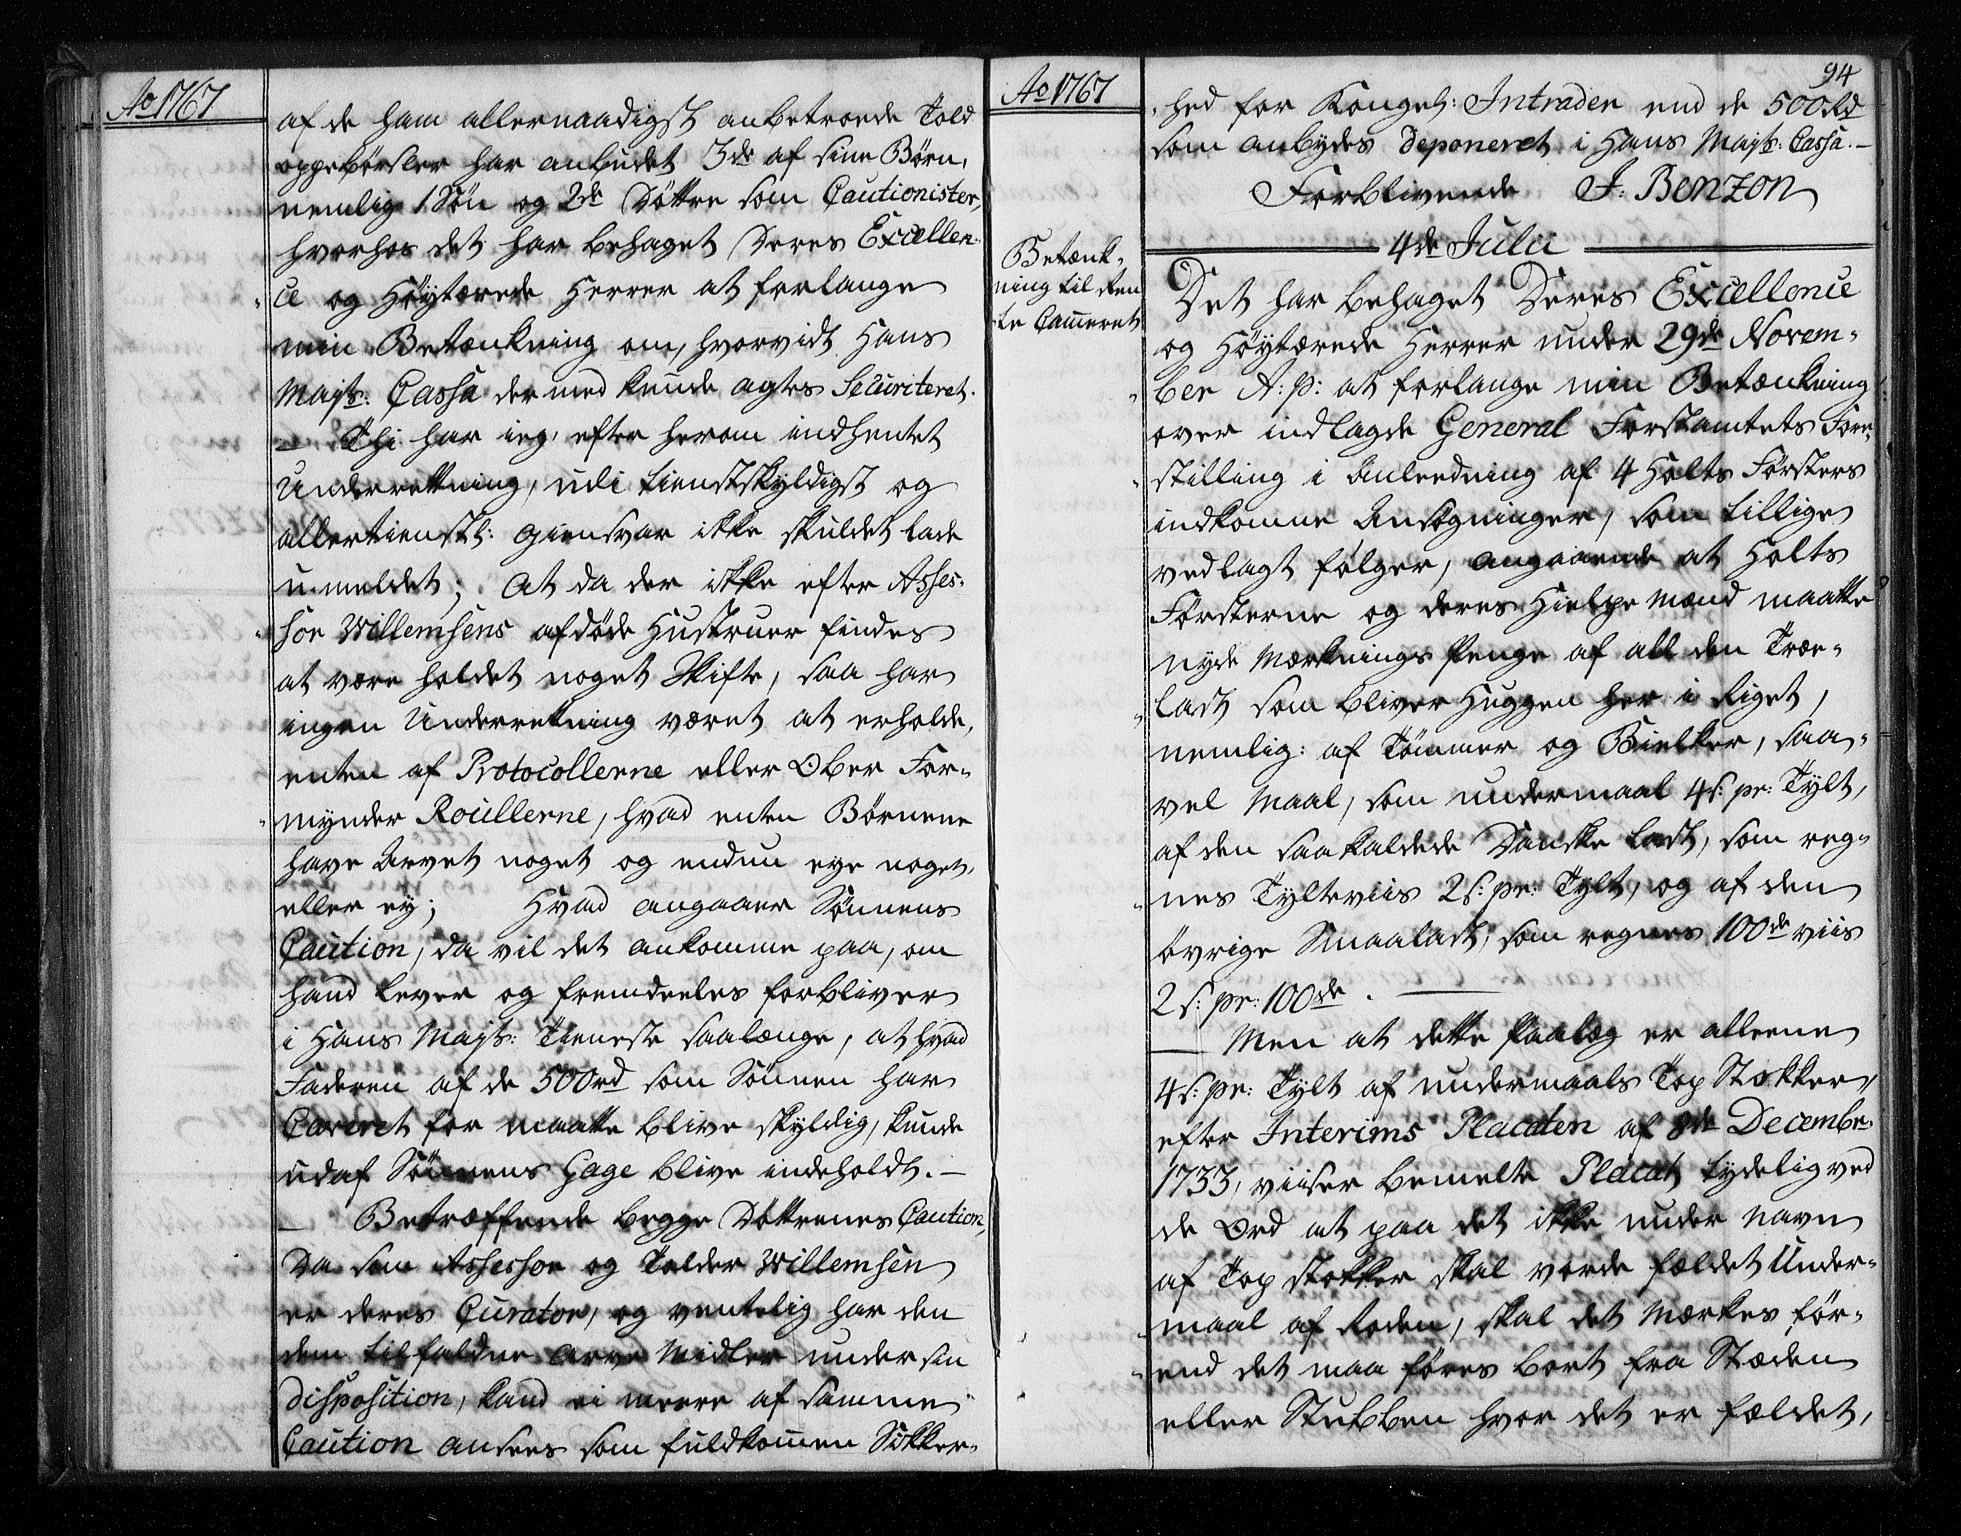 Ao 1767
af de ham allernaadigst anbetroede Told
oppebørsler har anbudet 3de af sine Børn,
nemlig 1 Søn og 2de Døttre som Cautionister,
hvorhos det har behaget Deres Excellen-
ce og Høytærede Herrer at forlange
min Betænkning om, hvorvidt Hans
Majts: Cassa dermed kunde agtes Securiteret.
– Thi har ieg, efter herom indhentet
Underretning, udi tienstskyldigst og
allertienstl: giensvar ikke skuldet lade
u-meldet; At da der ikke efter Asses-
sor Willemsens afdøde Hustruer findes
at være holdet noget Skifte, saa har
ingen Underretning været at erholde,
enten af Protocollerne eller Ober For-
mynder Roullerne, hvad enten Børnene
have Arvet noget og endnu eye noget,
eller ey; Hvad angaaer Sønnens
Caution, da vil det ankomme paa, om
hand lever og fremdeeles forbliver
i Hans Majts: Tieneste saalænge, at hvad
Faderen af de 500rd som Sønnen har
Caveret for maatte blive skyldig, kunde
udaf Sønnens Gage blive indeholdt. –
– Betræffende begge Døttrenes Caution,
Da som Assessor og Tolder Willemsen
er deres Curator, og ventelig har den
dem tilfaldne Arve Midler under sin
disposition, kand ei meere af samme
Caution ansees som fuldkommen Sikker-
Ao 1767
94
hed for Kongel: Intrader end de 500Rd
som anbydes deponeret i Hans Majts: Cassa. –
Forblivende J: Benzon
4de Julii
Betænk-
ning til Ren
te Cameret
Det har behaget Deres Excellence
og Høytærede Herrer under 29de Novem-
ber A: p: at forlange min Betænkning
over indlagde General Forstamtets Fore-
stilling i Anleedning af 4 Holts Førsters
indkomne Ansøgninger, som tillige
vedlagt følger, angaaende at Holts
Førsterne og deres Hielpe Mænd maatte
nyde Mærknings Penge af all den Træ-
last som bliver Huggen her i Riget,
nemlig: af Tømmer og Bielker, saa-
vel Maal, som undermaal 4s: pr: Tylt,
af den saakaldede Danske last, som reg-
nes Tylteviis 2s: pr: Tylt, og af den
øvrige Smaalast, som regnes 100de viis
2s: pr: 100de. –
– Men at dette Paalæg er alleene
4s: pr: Tylt af undermaals Top Stokker,
efter Interims Placaten af 8de Decembr:
1733, viiser bemelte Placat tydelig ved
de Ord at paa det ikke under Navn
af Top stokker skal vorde fældet Under-
maal af Roden, skal det Mærkes før-
end det maa føres bort fra Stæden
eller Stubben hvor det er fældet,